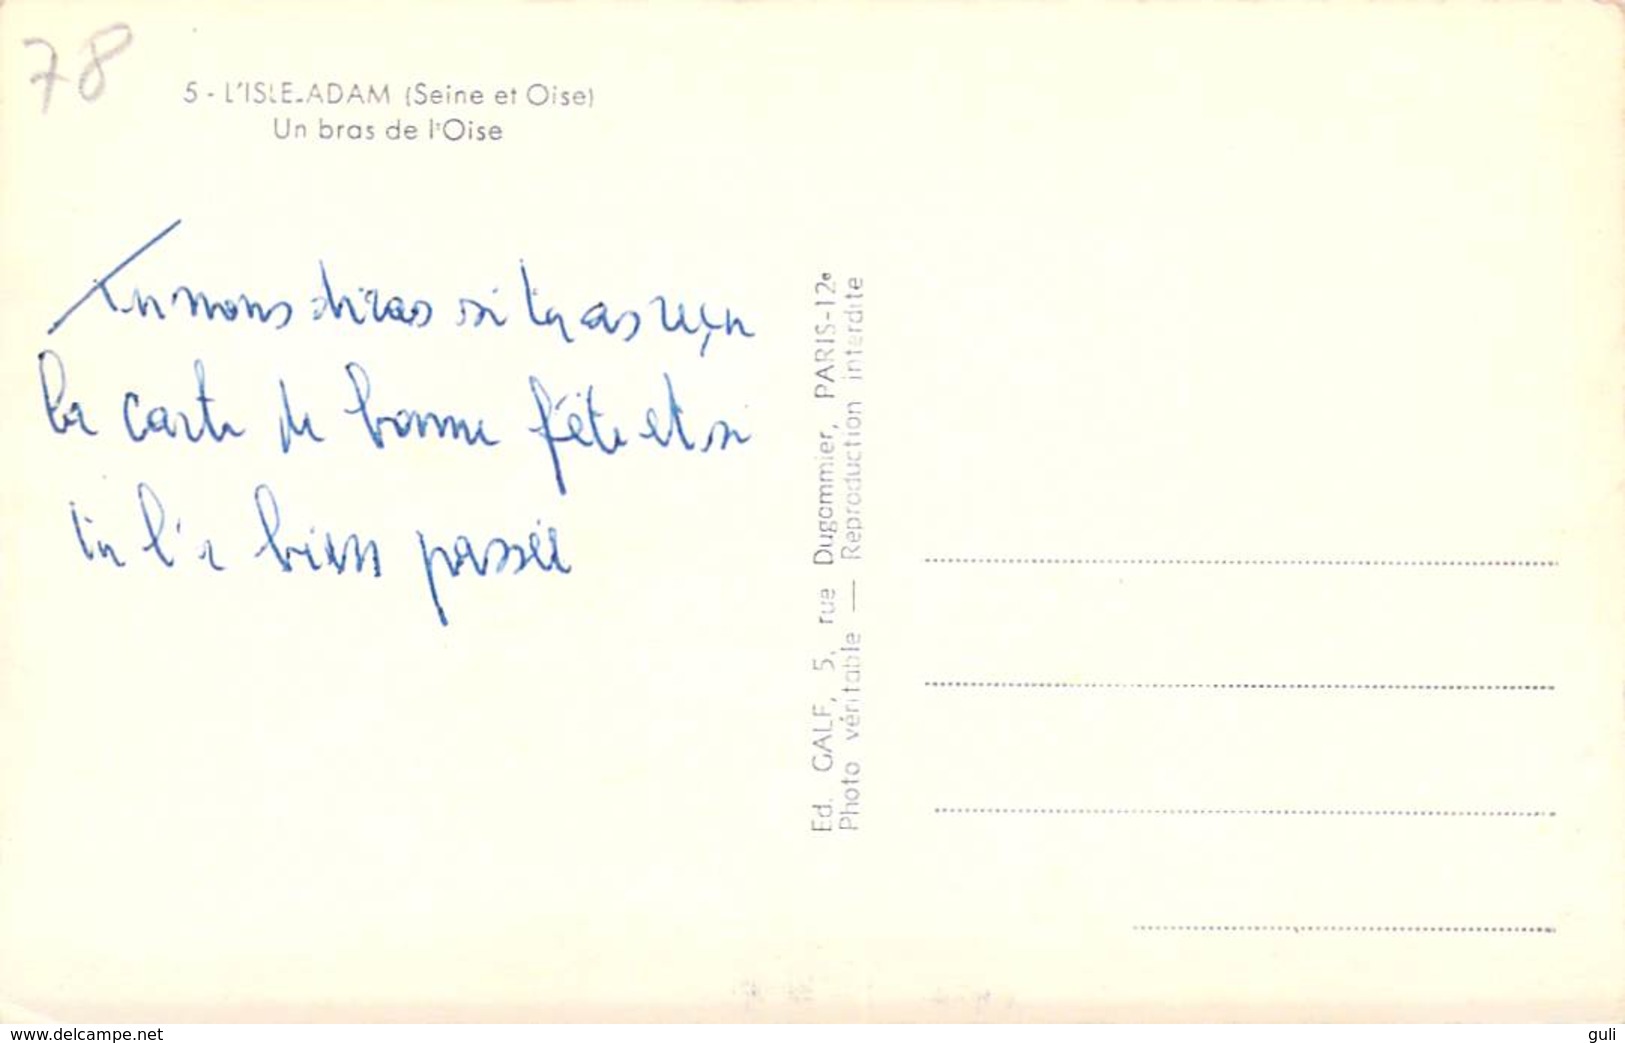 78
5 - L'ISLE-ADAM (Seine et Oise)
Un bras de l'Oise
Tu nous diras si tu as reçu
la carte de bonne fête et si
tu l'a bien passée
Ed. GALF, 5, rue Dugommier, PARIS-12e
Photo véritable — Reproduction interdite
www.delcampe.net
guli